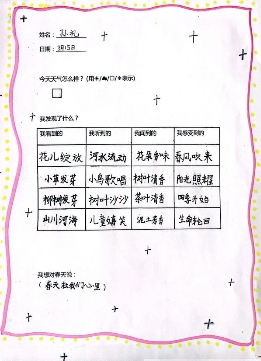 姓名：孙礼
日期：
今天天气怎么样？（用☀/☁/☐/☂表示）
我发现了什么？
我看到的 我听到的 我闻到的 我感受到的
花儿绽放 河水流动 花朵香味 春风吹来
小草发芽 小鸟歌唱 树叶清香 阳光照耀
柳树发芽 树叶沙沙 茶叶清香 四季开始
山川河海 儿童嬉笑 泥土芳香 生命轮回
我想对春天说：
（春天在我们心里）